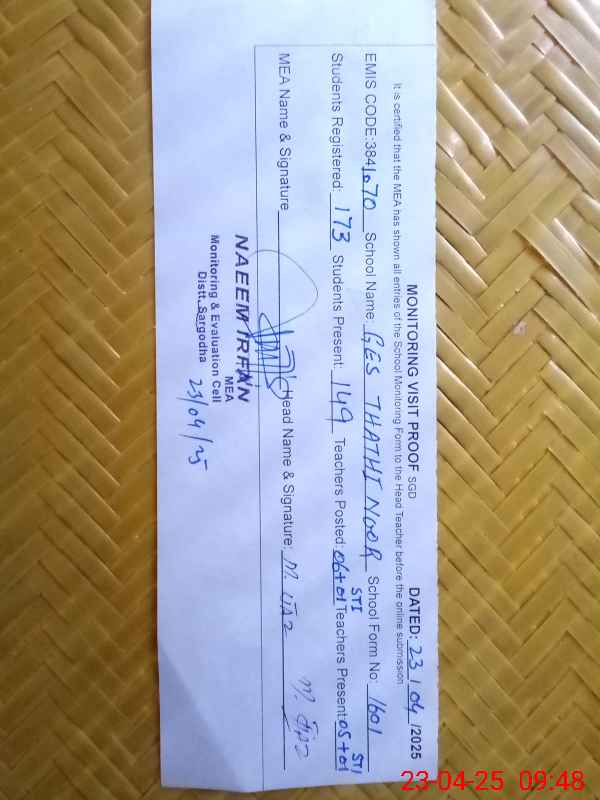 MONITORING VISIT PROOF SGD DATED: 23/04/2025
It is certified that the MEA has shown all entries of the School Monitoring Form to the Head Teacher before the online submission
EMIS CODE:3841070 School Name: GES THATHI NOOR School Form No: 1601
STI STI
Students Registered: 173 Students Present: 149 Teachers Posted: 06+01 Teachers Present: 05+01
MEA Name & Signature Head Name & Signature: M. IJAZ M. IJAZ
NAEEM IRFAN
MEA
Monitoring & Evaluation Cell
Distt. Sargodha
23/04/25
23-04-25 09:48